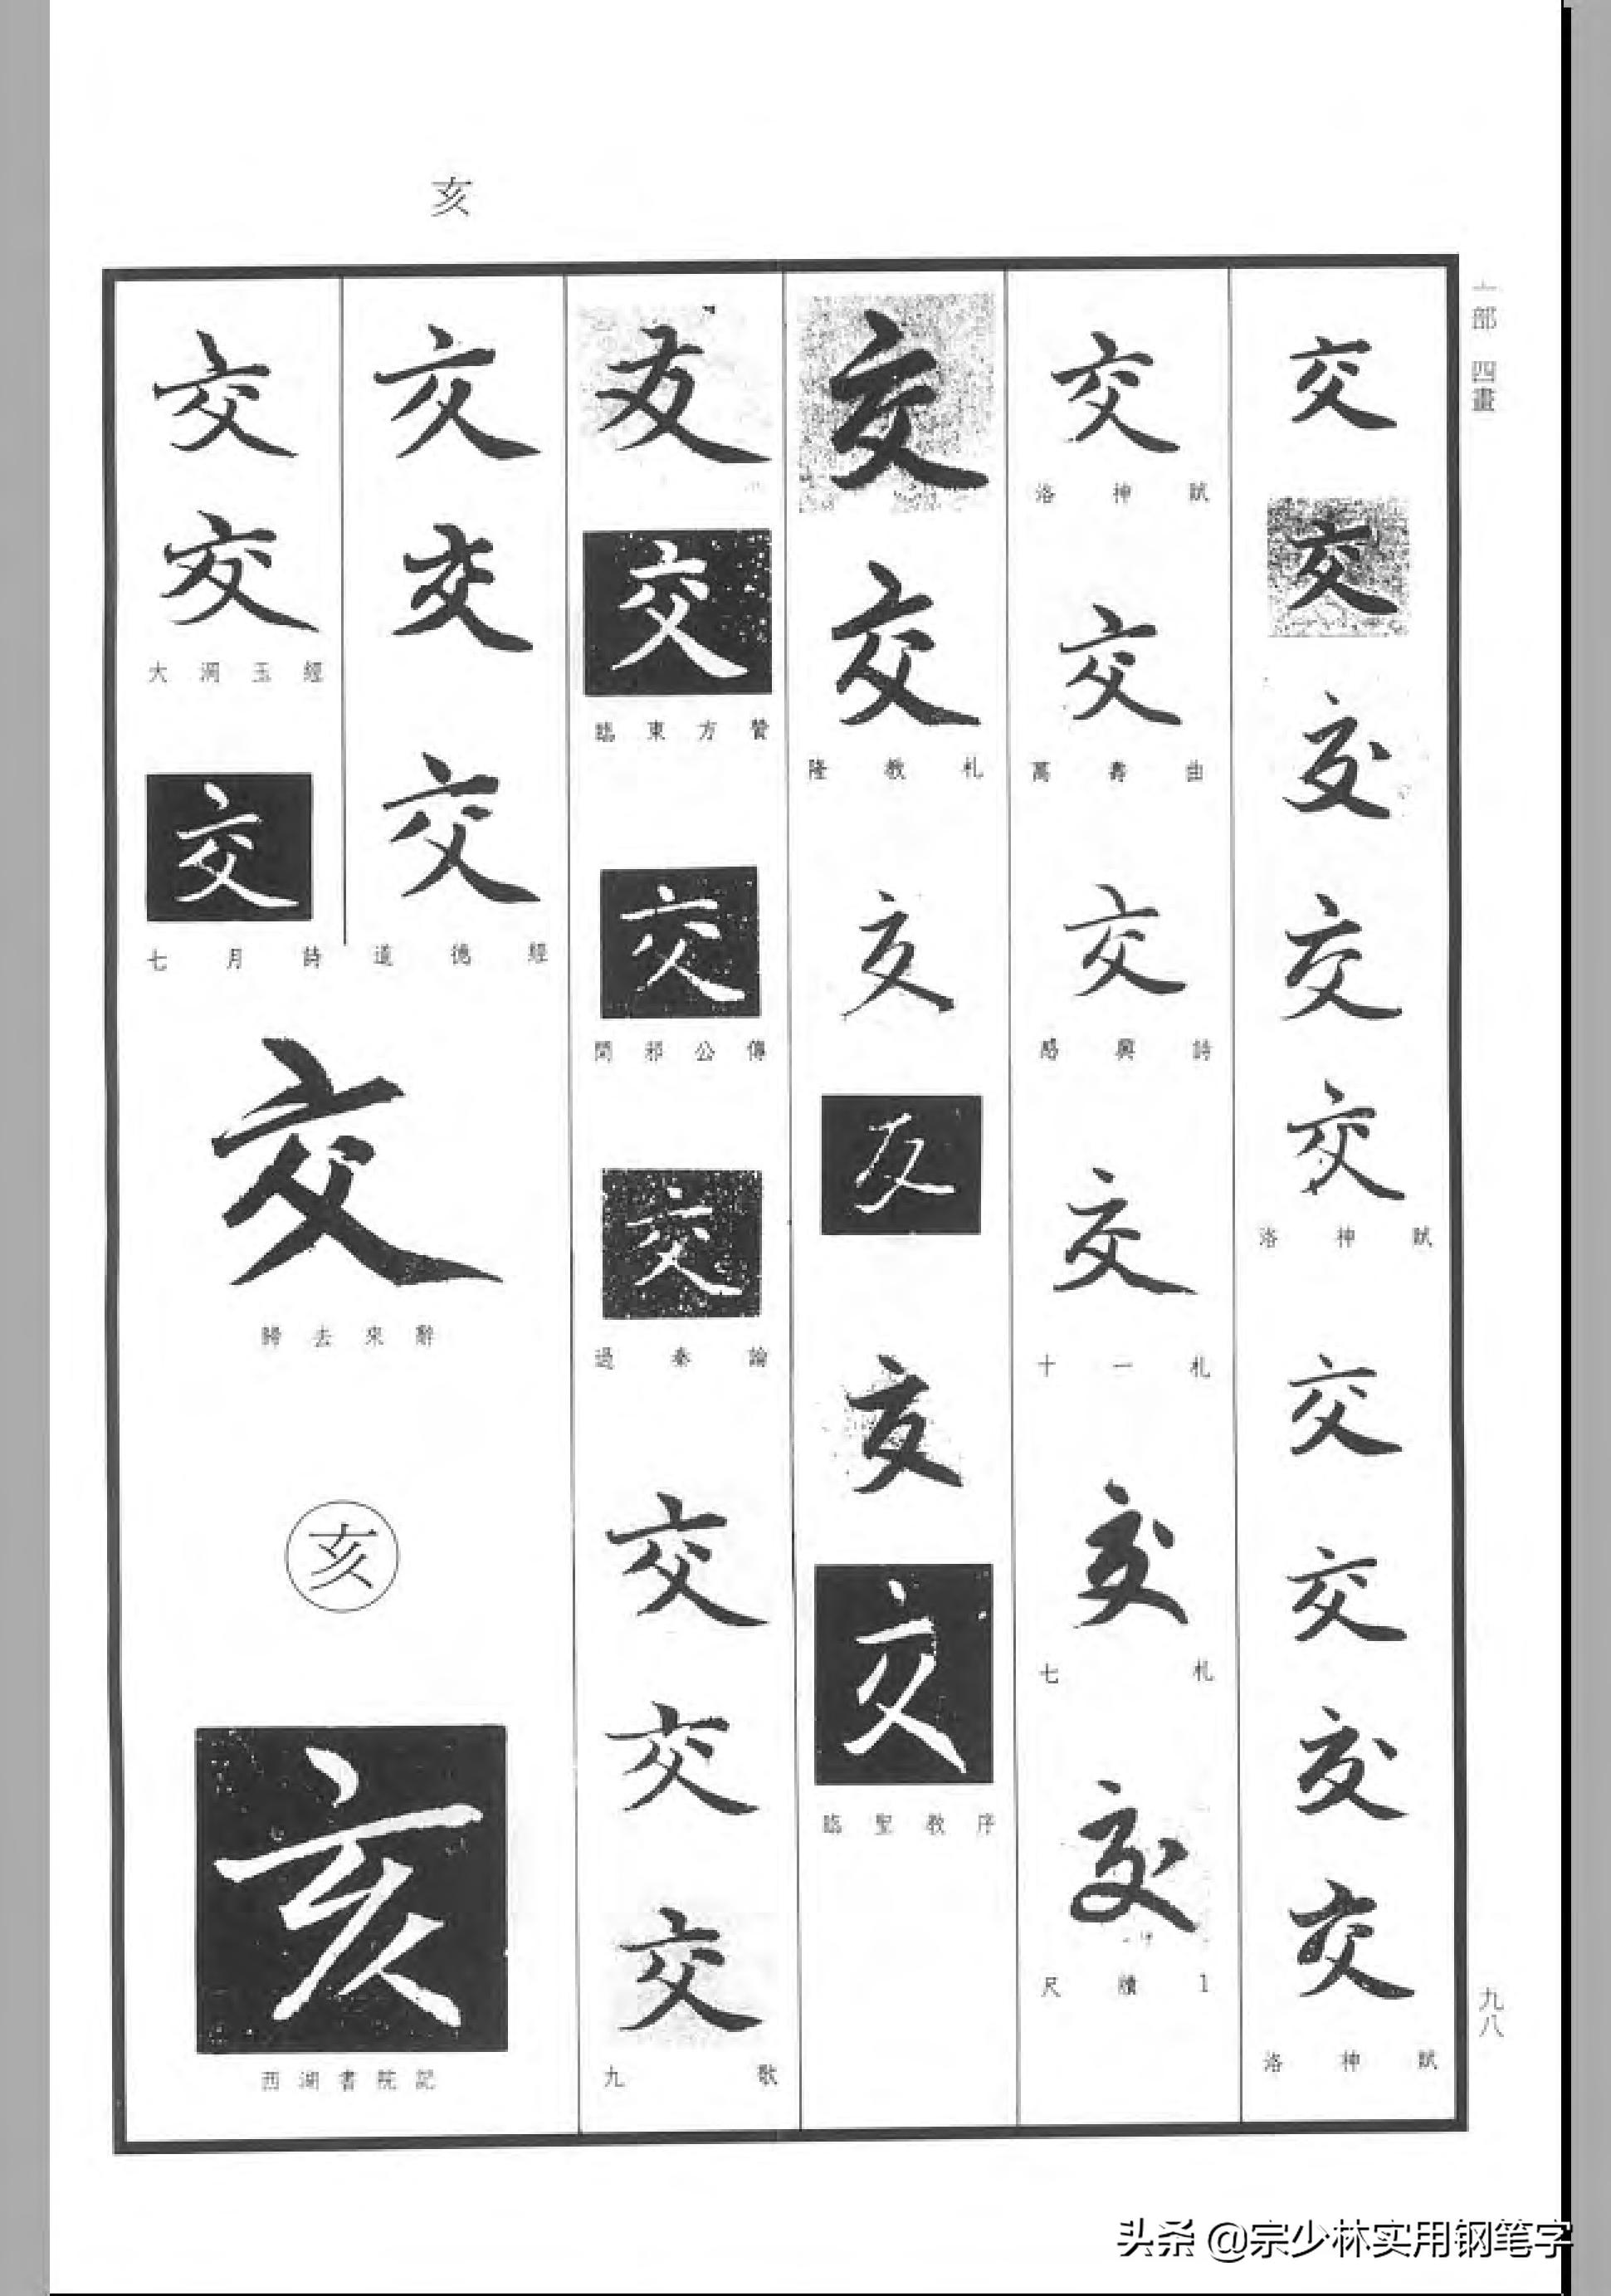 亥
亠部 四畫
交
交
交
交
交
洛神賦
交
交
交
交
洛神賦
交
洛神賦
交
萬壽曲
交
感興詩
交
十一札
交
七札
交
尺牘1
交
交
隆教札
交
交
交
交
臨聖教序
交
交
臨東方贊
交
閑邪公傳
交
過秦論
交
交
交
九歌
交
交
交
道德經
交
交
大洞玉經
交
七月詩
交
歸去來辭
亥
亥
西湖書院記
九八
头条 @宗少林实用钢笔字